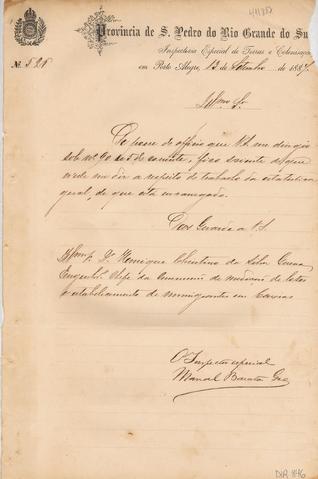 411852
Provincia de S. Pedro do Rio Grande do Su
Inspectoria Especial de Terras e Colonisação
Nº 828
em Porto Alegre, 13 de Setembro de 1887.
Illmo Sr.
De posse do officio que VS. me dirigio
sob nº 90 de 5 do corrente, fico sciente do que
n'elle me diz a respeito do trabalho da estatistica
geral, de que está encarregado.
Deos Guarde a V.S.
Illmo Sr. Dr. Henrique Christino da Silva
Engenhº Chefe da Commissão de medição de lotes
e estabelecimento de immigrantes em Caxias
O Inspector especial
Manoel
DIR 1146